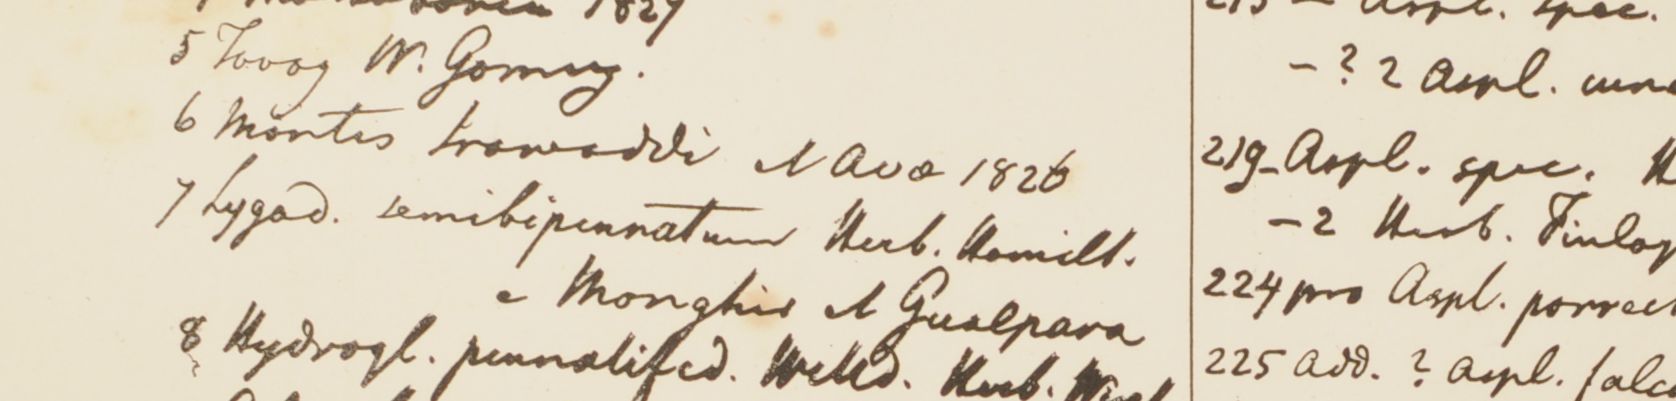 1827
5 Tovoy W. Gomez.
6 Montes Irawaddi et Ava 1826
7 Lygod. semibipennatum Herb. Hamilt.
e Monghir et Gualpara
8 Hydrogl. pennatifid. Willd. Herb. Wight
215 — Aspl. spec.
— ? 2 Aspl.
219 — Aspl. spec. H
— 2 Herb. Finlay
224 pro Aspl. porrect
225 add. ? Aspl. falc